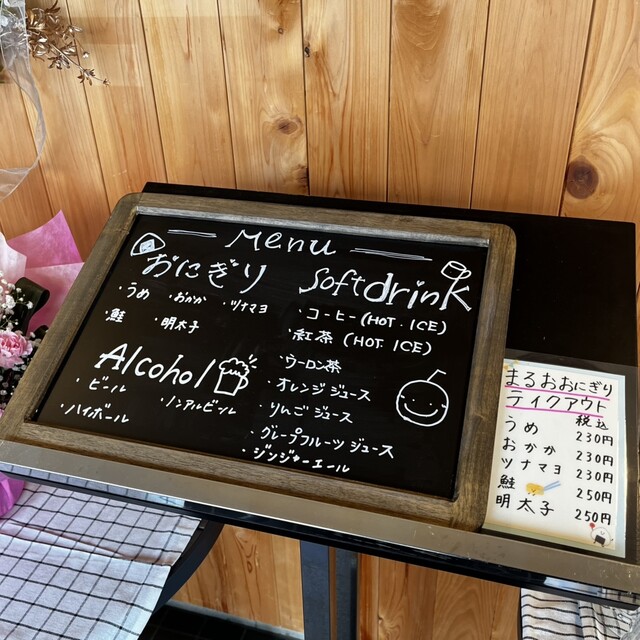 Menu
おにぎり
・うめ ・おかか ・ツナマヨ
・鮭 ・明太子
Alcohol
・ビール ・ノンアルビール
・ハイボール
Soft drink
・コーヒー (HOT. ICE)
・紅茶 (HOT. ICE)
・ウーロン茶
・オレンジジュース
・りんごジュース
・グレープフルーツジュース
・ジンジャーエール
まるおおにぎり
テイクアウト
税込
うめ 230円
おかか 230円
ツナマヨ 230円
鮭 250円
明太子 250円